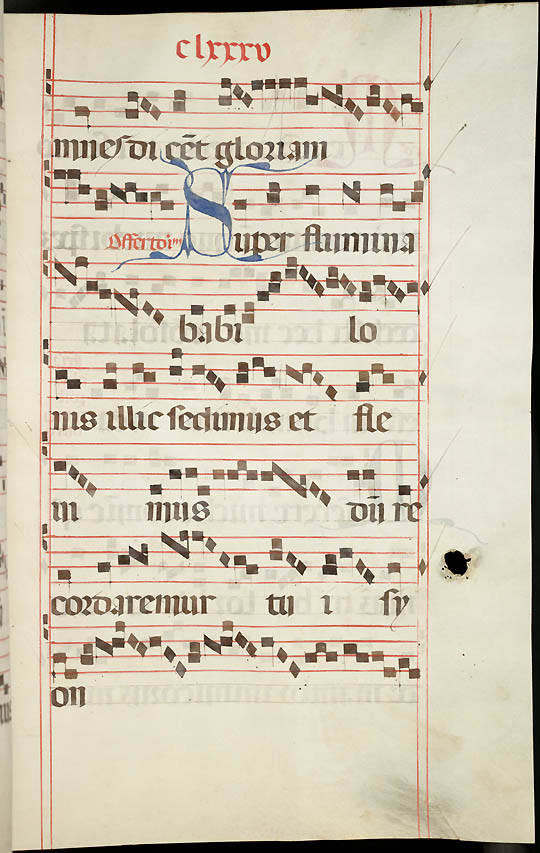 clxxxv
mnes di cēt gloriam
Offertoriū Super flumina
babi lo
nis illic sedimus et fle
ui mus dū re
cordaremur tu i sy
on